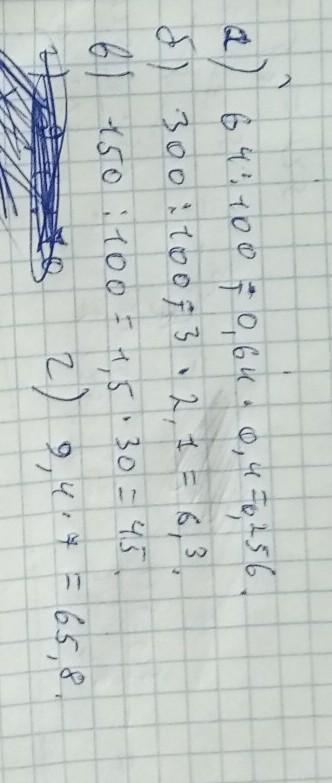 а) 64:100=0,64·0,4=0,256.
б) 300:100=3·2,1=6,3.
в) 150:100=1,5·30=45.
г) 9,4·7=65,8.